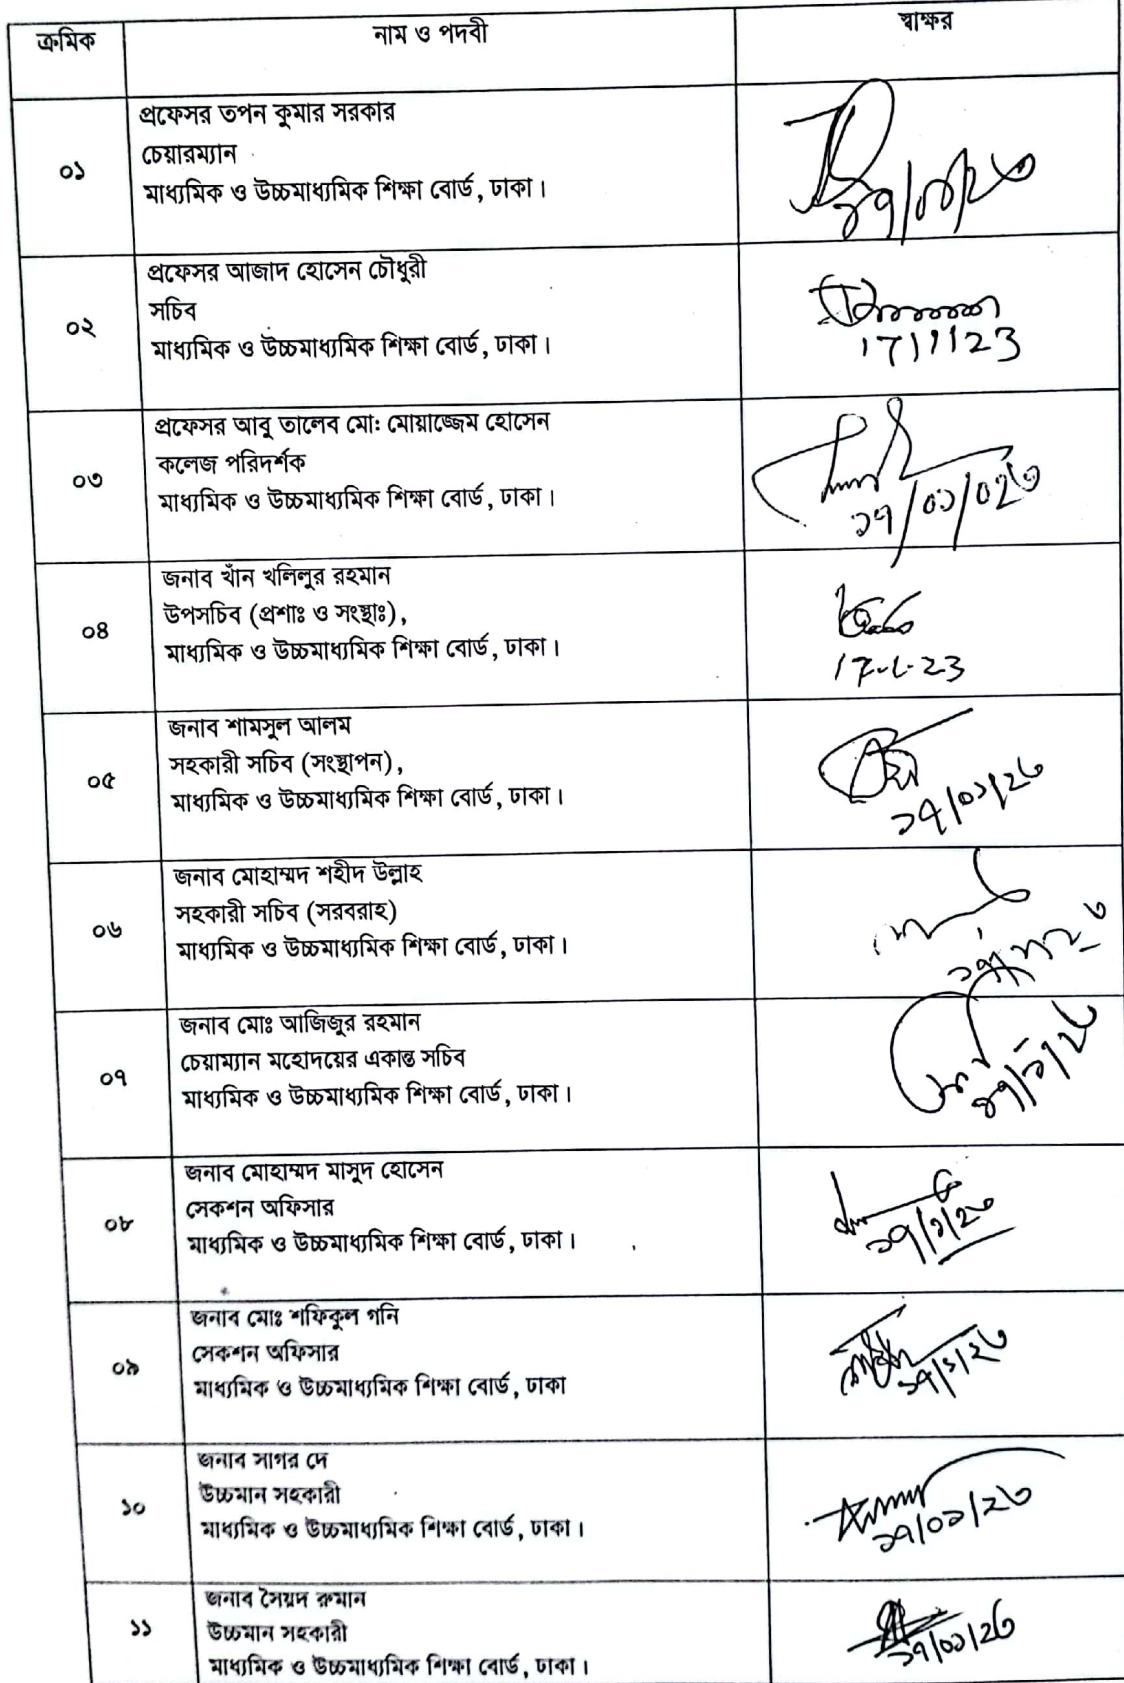 ক্রমিক নাম ও পদবী স্বাক্ষর
প্রফেসর তপন কুমার সরকার
চেয়ারম্যান
০১
মাধ্যমিক ও উচ্চমাধ্যমিক শিক্ষা বোর্ড, ঢাকা।
১৭/০১/২৩
প্রফেসর আজাদ হোসেন চৌধুরী
সচিব
০২
মাধ্যমিক ও উচ্চমাধ্যমিক শিক্ষা বোর্ড, ঢাকা।
17/1/23
প্রফেসর আবু তালেব মো: মোয়াজ্জেম হোসেন
কলেজ পরিদর্শক
০৩
মাধ্যমিক ও উচ্চমাধ্যমিক শিক্ষা বোর্ড, ঢাকা।
১৭/০১/০২৩
জনাব খাঁন খলিলুর রহমান
উপসচিব (প্রশাঃ ও সংস্থাঃ),
০৪
মাধ্যমিক ও উচ্চমাধ্যমিক শিক্ষা বোর্ড, ঢাকা।
17-1-23
জনাব শামসুল আলম
সহকারী সচিব (সংস্থাপন),
০৫
মাধ্যমিক ও উচ্চমাধ্যমিক শিক্ষা বোর্ড, ঢাকা।
১৭/০১/২৩
জনাব মোহাম্মদ শহীদ উল্লাহ
সহকারী সচিব (সরবরাহ)
০৬
মাধ্যমিক ও উচ্চমাধ্যমিক শিক্ষা বোর্ড, ঢাকা।
জনাব মোঃ আজিজুর রহমান
চেয়াম্যান মহোদয়ের একান্ত সচিব
০৭
মাধ্যমিক ও উচ্চমাধ্যমিক শিক্ষা বোর্ড, ঢাকা।
১৭/১/২৩
জনাব মোহাম্মদ মাসুদ হোসেন
সেকশন অফিসার
০৮
মাধ্যমিক ও উচ্চমাধ্যমিক শিক্ষা বোর্ড, ঢাকা।
১৭/১/২৩
জনাব মোঃ শফিকুল গনি
সেকশন অফিসার
০৯
মাধ্যমিক ও উচ্চমাধ্যমিক শিক্ষা বোর্ড, ঢাকা
১৭/১/২৩
জনাব সাগর দে
উচ্চমান সহকারী
১০
মাধ্যমিক ও উচ্চমাধ্যমিক শিক্ষা বোর্ড, ঢাকা।
১৭/০১/২৩
জনাব সৈয়দ রুমান
উচ্চমান সহকারী
১১
মাধ্যমিক ও উচ্চমাধ্যমিক শিক্ষা বোর্ড, ঢাকা।
১৭/০১/২৩